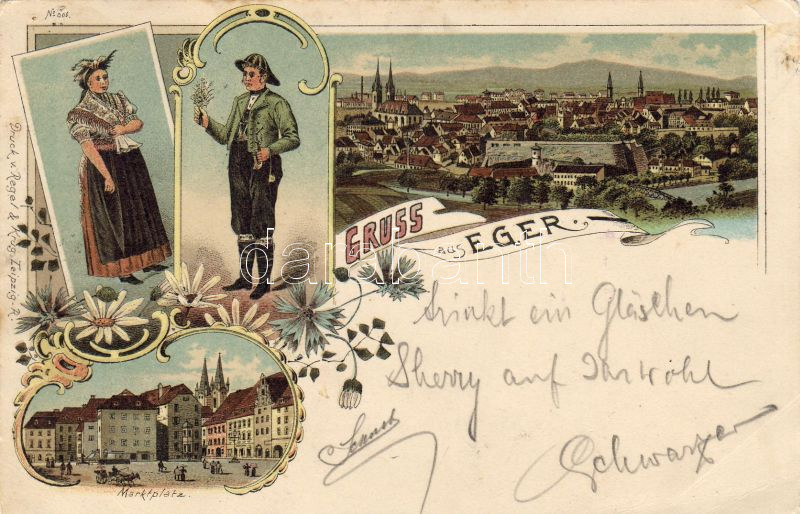 No 601.
Druck v. Regel & Krug, Leipzig-R.
GRUSS
aus EGER.
darabanth
trinkt ein Gläschen
Sherry auf Ihr Wohl
Schwarzer
Marktplatz.